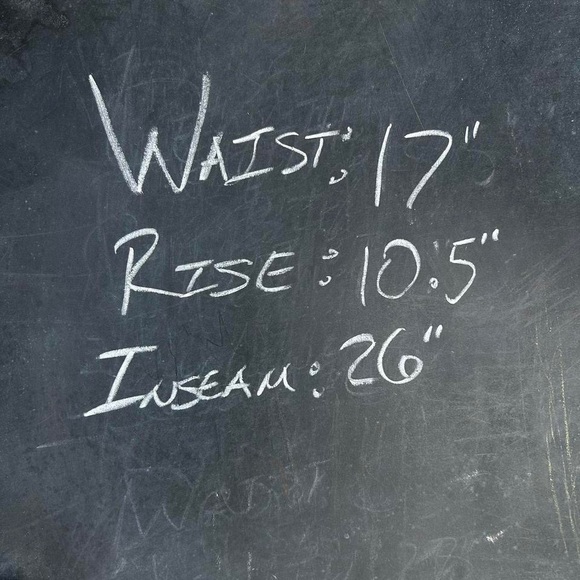 WAIST: 17"
RISE: 10.5"
INSEAM: 26"
WAIST